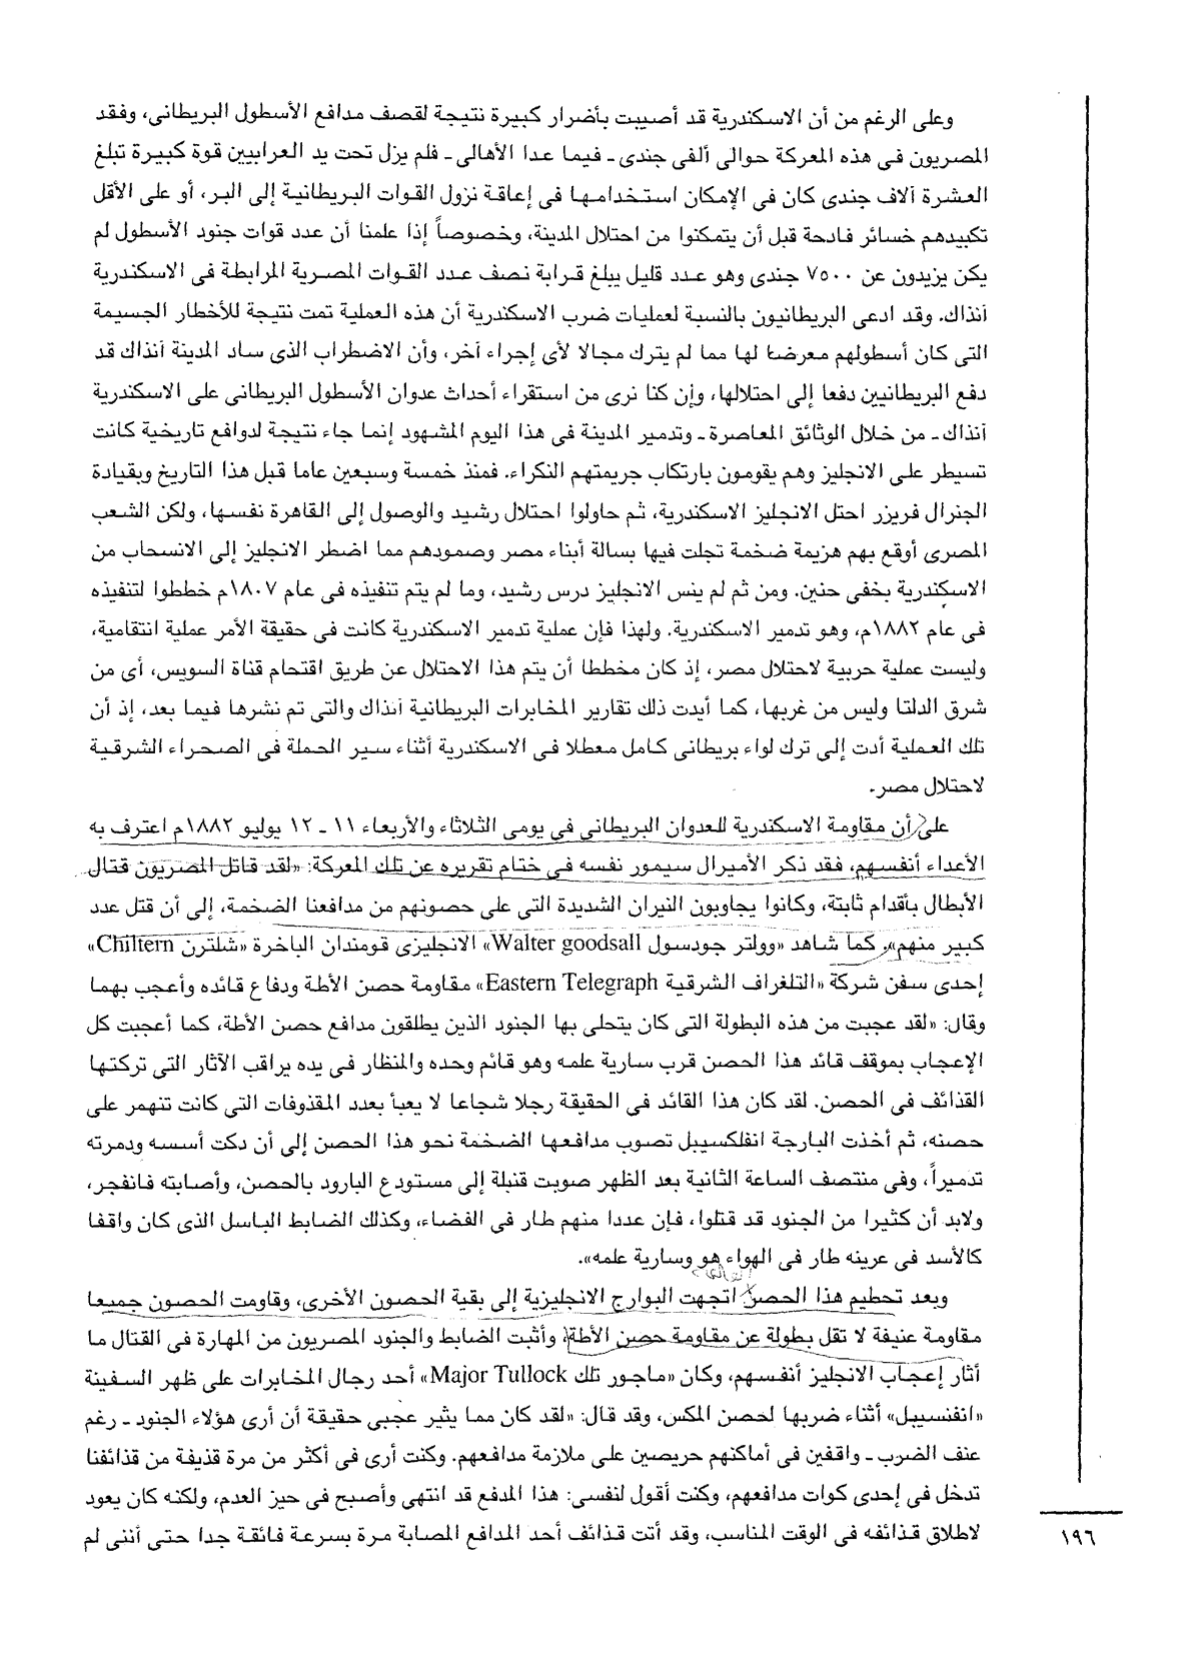 وعلى الرغم من أن الاسكندرية قد أصيبت بأضرار كبيرة نتيجة لقصف مدافع الأسطول البريطانى، وفقد
المصريون فى هذه المعركة حوالى ألفى جندى ـ فيما عدا الأهالى ـ فلم يزل تحت يد العرابيين قوة كبيرة تبلغ
العشرة آلاف جندى كان فى الإمكان استخدامها فى إعاقة نزول القوات البريطانية إلى البر، أو على الأقل
تكبيدهم خسائر فادحة قبل أن يتمكنوا من احتلال المدينة، وخصوصاً إذا علمنا أن عدد قوات جنود الأسطول لم
يكن يزيدون عن ٧٥٠٠ جندى وهو عدد قليل يبلغ قرابة نصف عدد القوات المصرية المرابطة فى الاسكندرية
آنذاك. وقد ادعى البريطانيون بالنسبة لعمليات ضرب الاسكندرية أن هذه العملية تمت نتيجة للأخطار الجسيمة
التى كان أسطولهم معرضا لها مما لم يترك مجالا لأى إجراء آخر، وأن الاضطراب الذى ساد المدينة آنذاك قد
دفع البريطانيين دفعا إلى احتلالها، وإن كنا نرى من استقراء أحداث عدوان الأسطول البريطانى على الاسكندرية
آنذاك ـ من خلال الوثائق المعاصرة ـ وتدمير المدينة فى هذا اليوم المشهود إنما جاء نتيجة لدوافع تاريخية كانت
تسيطر على الانجليز وهم يقومون بارتكاب جريمتهم النكراء. فمنذ خمسة وسبعين عاما قبل هذا التاريخ وبقيادة
الجنرال فريزر احتل الانجليز الاسكندرية، ثم حاولوا احتلال رشيد والوصول إلى القاهرة نفسها، ولكن الشعب
المصرى أوقع بهم هزيمة ضخمة تجلت فيها بسالة أبناء مصر وصمودهم مما اضطر الانجليز إلى الانسحاب من
الاسكندرية بخفى حنين. ومن ثم لم ينس الانجليز درس رشيد، وما لم يتم تنفيذه فى عام ١٨٠٧م خططوا لتنفيذه
فى عام ١٨٨٢م، وهو تدمير الاسكندرية. ولهذا فإن عملية تدمير الاسكندرية كانت فى حقيقة الأمر عملية انتقامية،
وليست عملية حربية لاحتلال مصر، إذ كان مخططا أن يتم هذا الاحتلال عن طريق اقتحام قناة السويس، أى من
شرق الدلتا وليس من غربها، كما أيدت ذلك تقارير المخابرات البريطانية آنذاك والتى تم نشرها فيما بعد، إذ أن
تلك العملية أدت إلى ترك لواء بريطانى كامل معطلا فى الاسكندرية أثناء سير الحملة فى الصحراء الشرقية
لاحتلال مصر.
على أن مقاومة الاسكندرية للعدوان البريطانى فى يومى الثلاثاء والأربعاء ١١ ـ ١٢ يوليو ١٨٨٢م اعترف به
الأعداء أنفسهم، فقد ذكر الأميرال سيمور نفسه فى ختام تقريره عن تلك المعركة: «لقد قاتل المصريون قتال
الأبطال بأقدام ثابتة، وكانوا يجاوبون النيران الشديدة التى على حصونهم من مدافعنا الضخمة، إلى أن قتل عدد
كبير منهم»، كما شاهد «وولتر جودسول Walter goodsall» الانجليزى قومندان الباخرة «شلترن Chiltern»
إحدى سفن شركة «التلغراف الشرقية Eastern Telegraph» مقاومة حصن الأطة ودفاع قائده وأعجب بهما
وقال: «لقد عجبت من هذه البطولة التى كان يتحلى بها الجنود الذين يطلقون مدافع حصن الأطة، كما أعجبت كل
الإعجاب بموقف قائد هذا الحصن قرب سارية علمه وهو قائم وحده والمنظار فى يده يراقب الآثار التى تركتها
القذائف فى الحصن. لقد كان هذا القائد فى الحقيقة رجلا شجاعا لا يعبأ بعدد المقذوفات التى كانت تنهمر على
حصنه، ثم أخذت البارجة انفلكسيبل تصوب مدافعها الضخمة نحو هذا الحصن إلى أن دكت أسسه ودمرته
تدميراً، وفى منتصف الساعة الثانية بعد الظهر صوبت قنبلة إلى مستودع البارود بالحصن، وأصابته فانفجر،
ولابد أن كثيرا من الجنود قد قتلوا، فإن عددا منهم طار فى الفضاء، وكذلك الضابط الباسل الذى كان واقفا
كالأسد فى عرينه طار فى الهواء هو وسارية علمه».
وبعد تحطيم هذا الحصن اتجهت البوارج الانجليزية إلى بقية الحصون الأخرى، وقاومت الحصون جميعا
مقاومة عنيفة لا تقل بطولة عن مقاومة حصن الأطة، وأثبت الضابط والجنود المصريون من المهارة فى القتال ما
أثار إعجاب الانجليز أنفسهم، وكان «ماجور تلك Major Tullock» أحد رجال المخابرات على ظهر السفينة
«انفنسيبل» أثناء ضربها لحصن المكس، وقد قال: «لقد كان مما يثير عجبى حقيقة أن أرى هؤلاء الجنود ـ رغم
عنف الضرب ـ واقفين فى أماكنهم حريصين على ملازمة مدافعهم. وكنت أرى فى أكثر من مرة قذيفة من قذائفنا
تدخل فى إحدى كوات مدافعهم، وكنت أقول لنفسى: هذا المدفع قد انتهى وأصبح فى حيز العدم، ولكنه كان يعود
لاطلاق قذائفه فى الوقت المناسب، وقد أتت قذائف أحد المدافع المصابة مرة بسرعة فائقة جدا حتى أننى لم
١٩٦